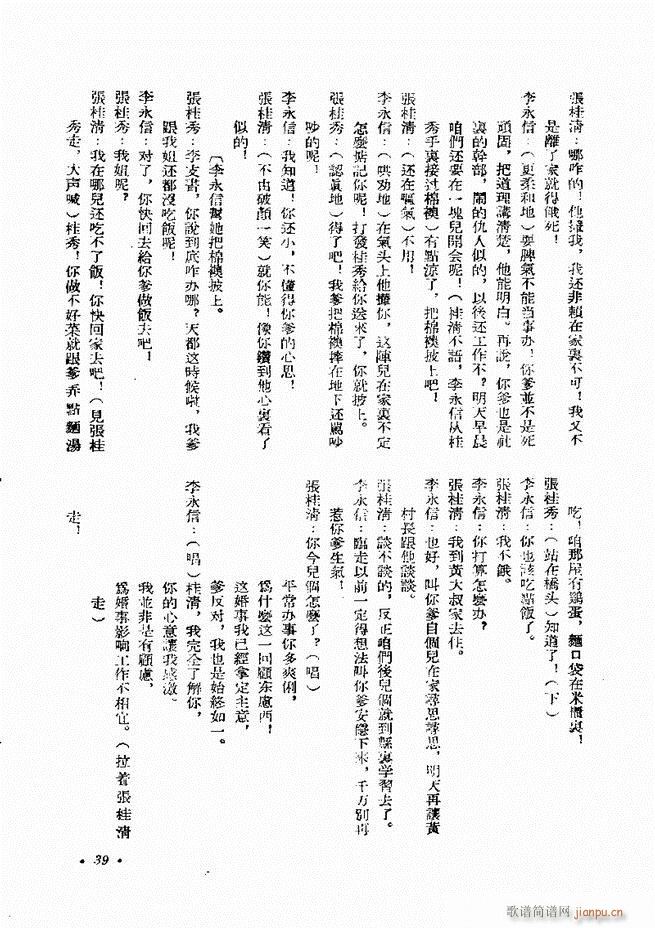 張桂清：哪咋的！他攆我，我还非賴在家裏不可！我又不
是離了家就得餓死！
李永信：（更柔和地）耍脾氣不能当事办！你爹並不是死
頑固，把道理講清楚，他能明白。再說，你爹也是社
裏的幹部，鬧的仇人似的，以後还工作不？明天早晨
咱們还要在一塊兒開会呢！（桂清不語，李永信从桂
秀手裏接过棉襖）有點涼了，把棉襖披上吧！
張桂清：（还在嘔氣）不用！
李永信：（哄劝地）在氣头上他攆你，这陣兒在家裏不定
怎麼惦記你呢！打發桂秀給你送來了，你就披上。
張桂秀：（認眞地）得了吧！我爹把棉襖摔在地下还罵吵
吵的呢！
李永信：我知道！你还小，不懂得你爹的心思！
張桂清：（不由破顏一笑）就你能！像你鑽到他心裏看了
似的！
〔李永信幫她把棉襖披上。
張桂秀：李支書，你說到底咋办哪？天都这時候啦，我爹
跟我姐还都沒吃飯呢！
李永信：对了，你快回去給你爹做飯去吧！
張桂秀：我姐呢？
張桂清：我在哪兒还吃不了飯！你快回家去吧！（見張桂
秀走，大声喊）桂秀！你做不好菜就跟爹弄點麵湯
吃，咱那屋有鷄蛋，麵口袋在米櫃裏！
張桂秀：（站在橋头）知道了！（下）
李永信：你也該吃點飯了。
張桂清：我不餓。
李永信：你打算怎麼办？
張桂清：我到黃大叔家去住。
李永信：也好，叫你爹自個兒在家尋思尋思，明天再讓黃
村長跟他談談。
張桂清：談不談的，反正咱們後兒個就到縣裏学習去了。
李永信：臨走以前一定得想法叫你爹安隱下來，千万別再
惹你爹生氣！
張桂清：你今兒個怎麼了？（唱）
平常办事你多爽俐，
爲什麼这一回顧东慮西！
这婚事我已經拿定主意，
爹反对，我也是始終如一。
李永信：（唱）桂清，我完全了解你，
你的心意讓我感激。
我並非是有顧慮，
爲婚事影响工作不相宜。（拉着張桂清
走）
走！
·39·
歌谱简谱网 jianpu.cn